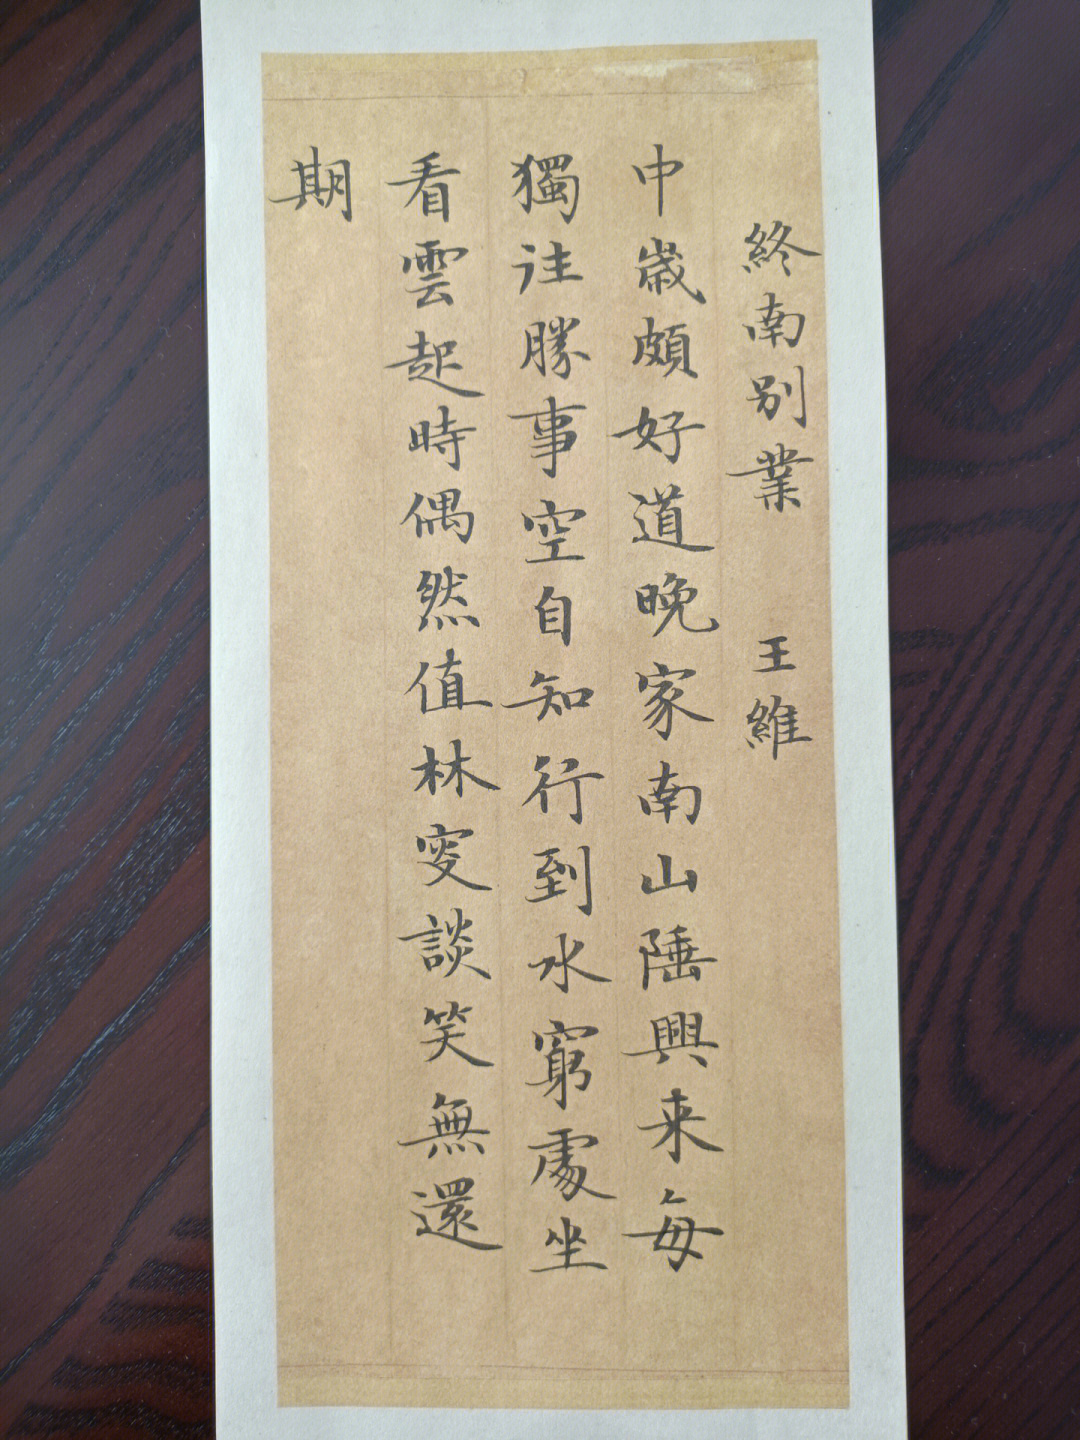 終南別業 王維
中歲頗好道晚家南山陲興来每
獨往勝事空自知行到水窮處坐
看雲起時偶然值林叟談笑無還
期